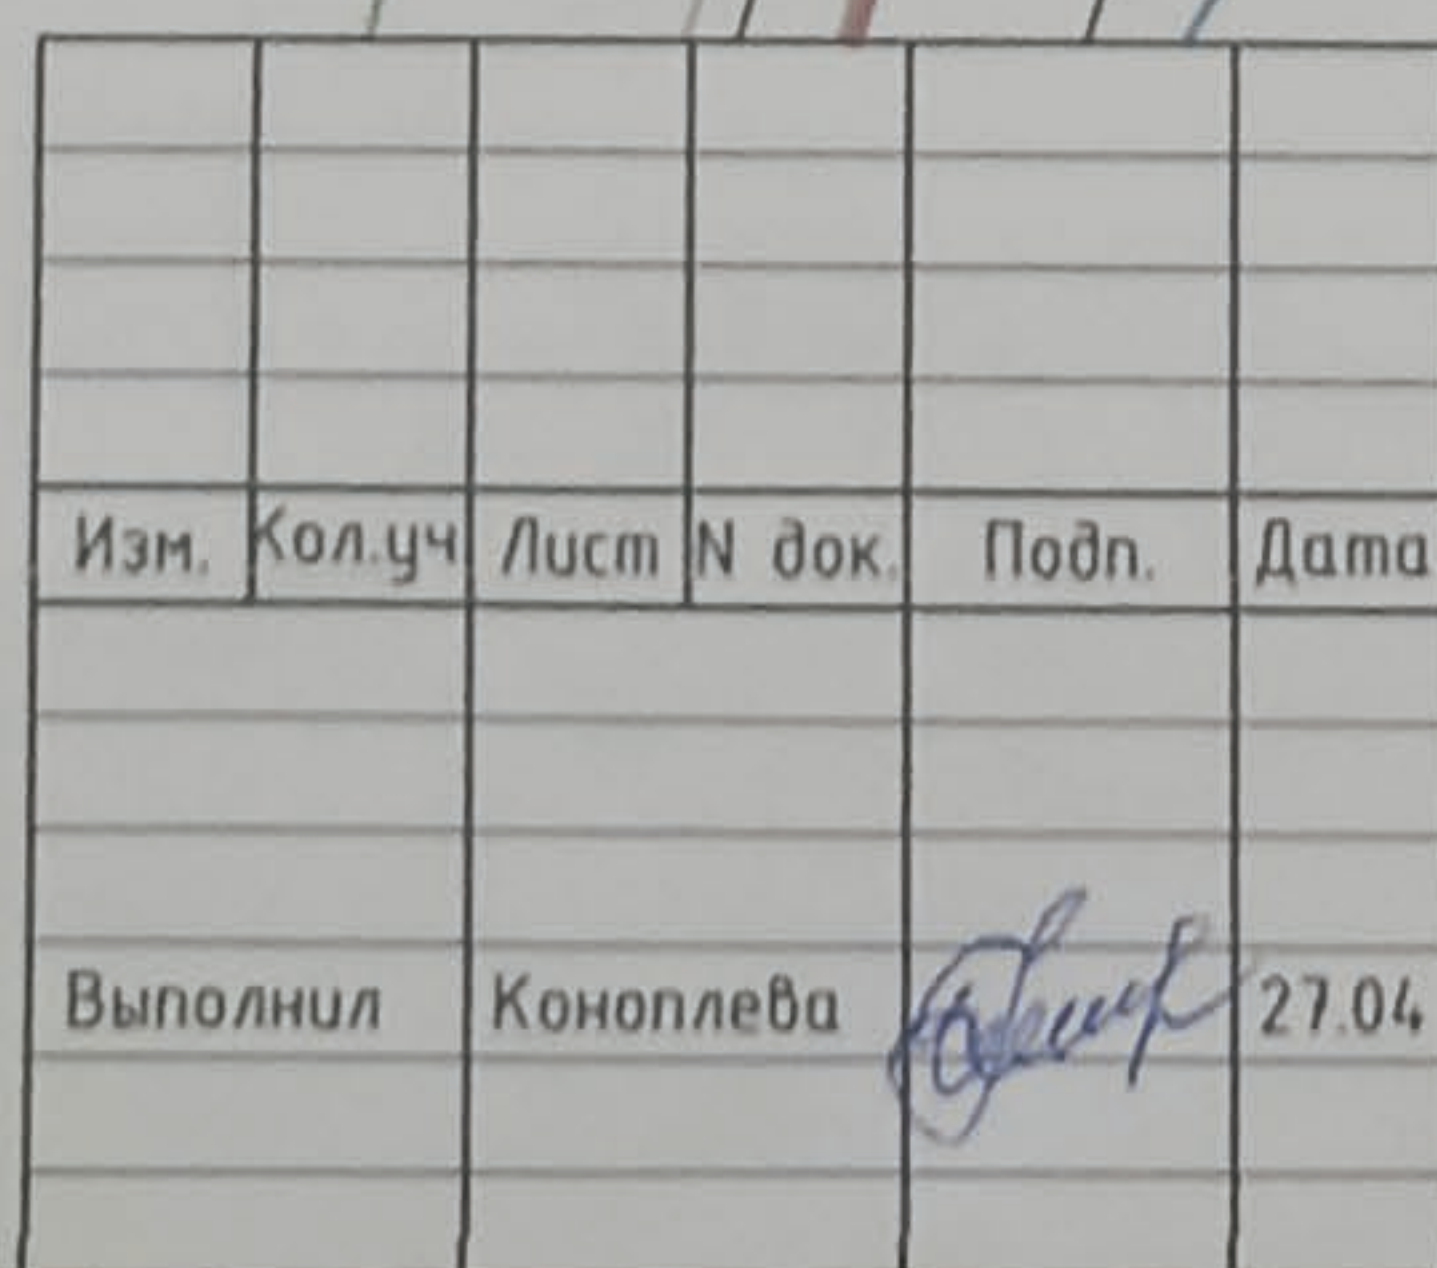 Изм. Кол.уч Лист N док. Подп. Дата
Выполнил Коноплева 27.04